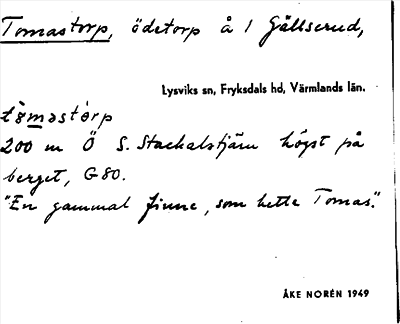 Tomastorp, ödetorp å 1 Gällserud,
Lysviks sn, Fryksdals hd, Värmlands län.
tòmastórp
200 m Ö S. Stackalstjärn högst på
berget, G80.
"En gammal finne, som hette Tomas."
ÅKE NORÉN 1949